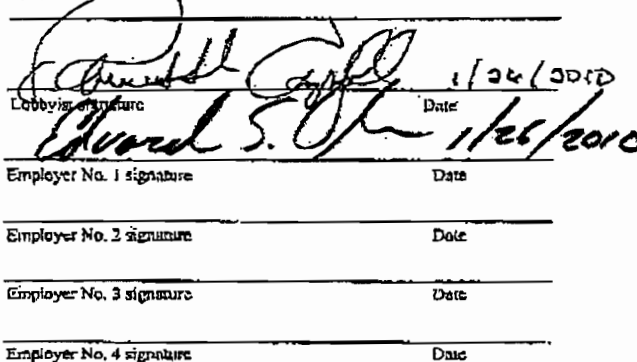 1/26/2010
Lobbyist signature Date
Edward S. 1/26/2010
Employer No. 1 signature Date
Employer No. 2 signature Date
Employer No. 3 signature Date
Employer No. 4 signature Date